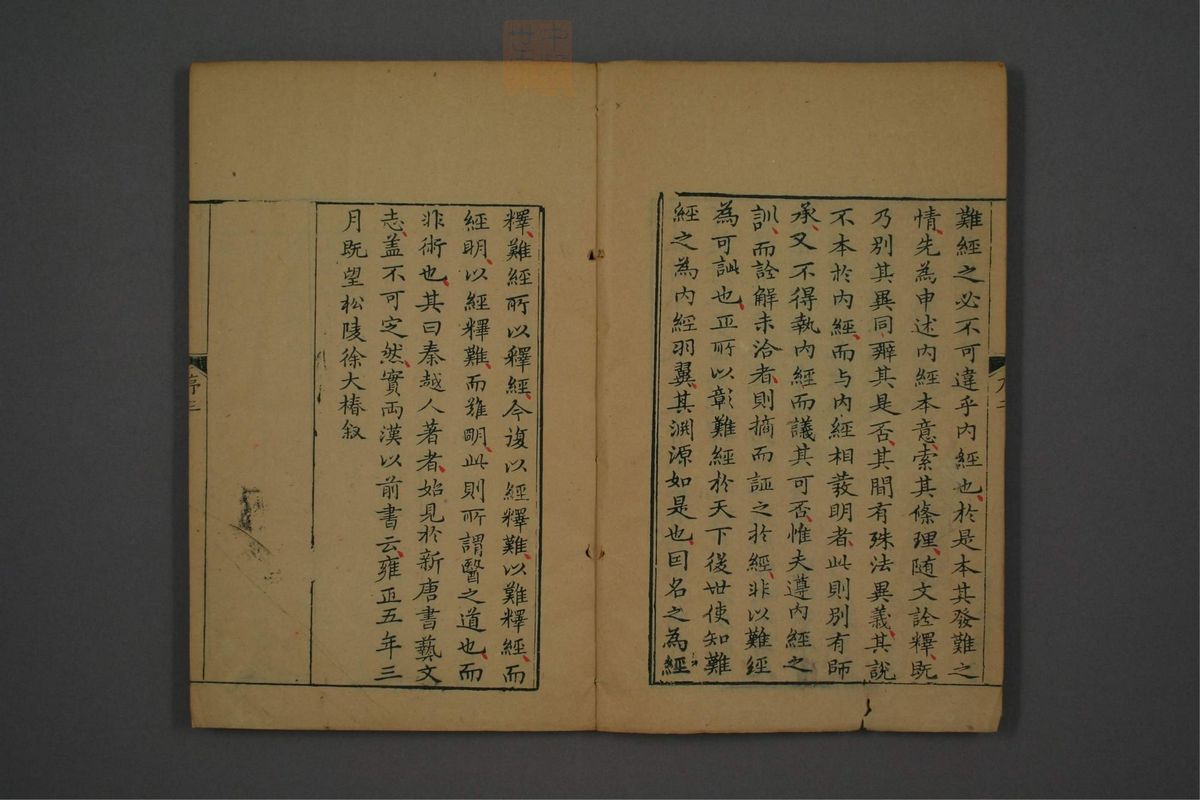 難經之必不可違乎內經也於是本其發難之
情先為申述內經本意索其條理隨文詮釋既
乃別其異同辨其是否其間有殊法異義其說
不本於內經而与內經相發明者此則別有師
承又不得執內經而議其可否惟夫遵內經之
訓而詮解未洽者則摘而証之於經非以難經
為可訿也正所以彰難經於天下後世使知難
經之為內經羽翼其淵源如是也因名之為經
釋難經所以釋經今復以經釋難以難釋經而
經明以經釋難而難明此則所謂醫之道也而
非術也其曰秦越人著者始見於新唐書藝文
志盖不可定然實兩漢以前書云雍正五年三
月既望松陵徐大椿叙
序三